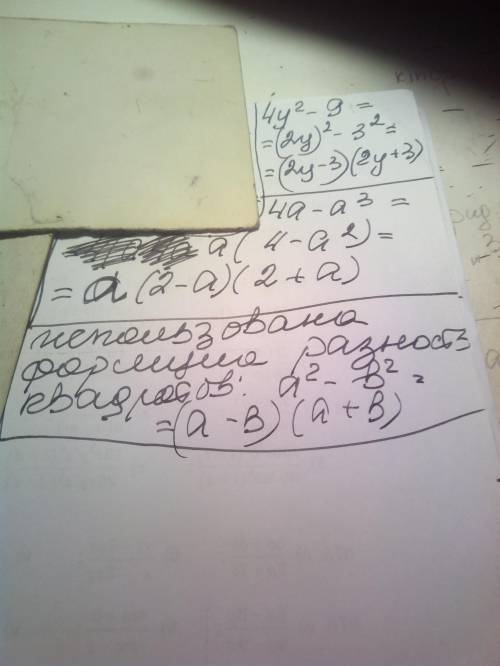 4y² - 9 =
= (2y)² - 3² =
= (2y-3)(2y+3)
4a - a³ =
a(4-a²) =
= a(2-a)(2+a)
использована
формула разность
квадратов: a² - b² =
= (a-b)(a+b)